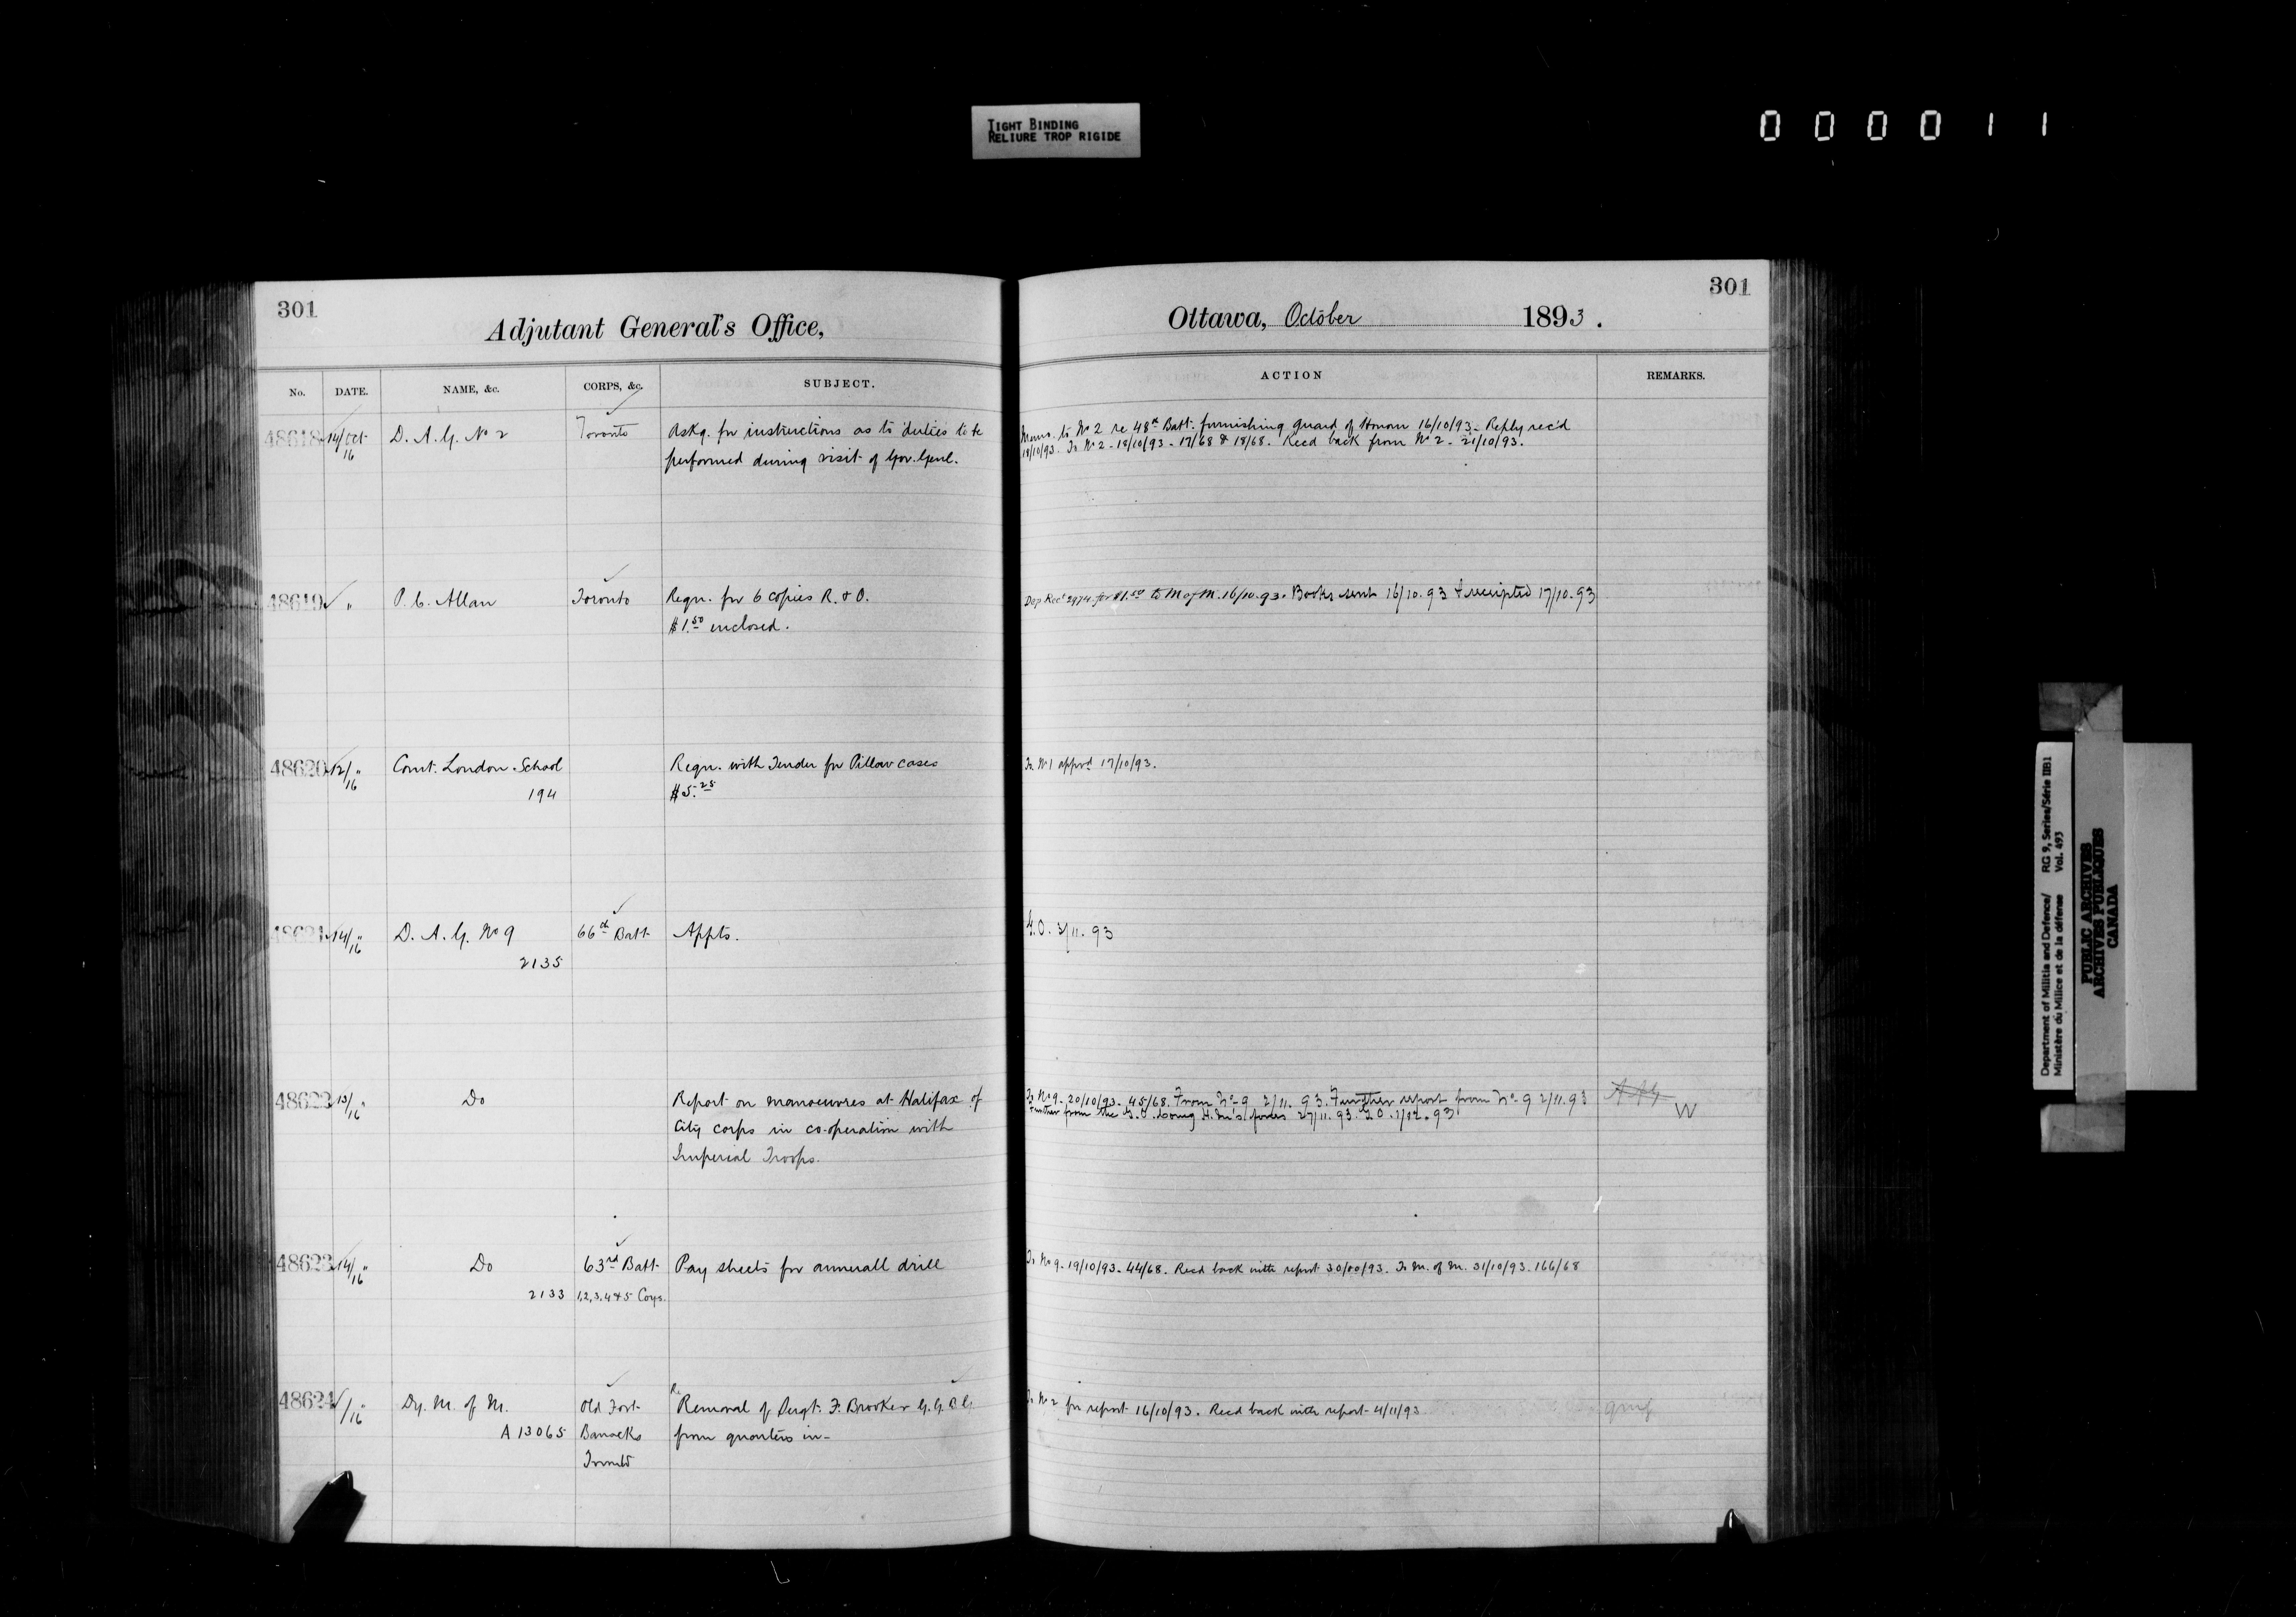 TIGHT BINDING
RELIURE TROP RIGIDE
000011
301
Adjutant General's Office,
No. DATE. NAME, &c. CORPS, &c. SUBJECT.
48618 14/16 Oct D. A. G. No 2 Toronto Askg. for instructions as to duties to be
performed during visit of Gov. Genl.
48619 " P. C. Allan Toronto Reqn. for 6 copies R. & O.
$1.50 inclosed.
48620 12/16 " Comt. London School Reqn. with Tender for Pillow cases
194 $5.25
48621 14/16 " D. A. G. No 9 66th Batt Appts.
2135
48622 13/16 " Do Report on manoeuvres at Halifax of
City corps in co-operation with
Imperial Troops.
48623 14/16 " Do 63rd Batt Pay sheets for annuall drill
2133 1,2,3,4 & 5 Coys.
48624 /16 " Dy. M. of M. Old Fort Re Removal of Sergt. F. Brooker G.G.B.G.
A 13065 Barracks from quarters in -
Toronto
301
Ottawa, October 1893.
ACTION REMARKS.
Memo. to No 2 re 48th Batt. furnishing guard of Honour 16/10/93 - Reply rec'd
18/10/93. To No 2 - 18/10/93 - 17/68 & 18/68. Recd back from No 2 - 21/10/93.
Dep Rect 2974 for $1.50 to M of M. 16/10.93. Books sent 16/10.93 & receipted 17/10.93
To No 1 approvd 17/10/93.
G.O. 3/11.93
To No 9. 20/10/93 - 45/68. From No 9 2/11.93. Further report from No 9 2/11.93
Further from the G.O. Comg H.M's. forces 27/11.93. G.O. 1/12.93 W
To No 9. 19/10/93 - 44/68. Recd back with report 30/10/93. To M. of M. 31/10/93. 166/68
To No 2 for report 16/10/93. Recd back with report 4/11/93
Department of Militia and Defence/ RG 9, Series/Série IIB1
Ministère du Milice et de la défense Vol. 493
PUBLIC ARCHIVES
ARCHIVES PUBLIQUES
CANADA